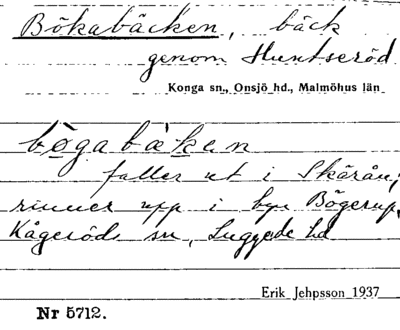 Bökabäcken, bäck
genom Huntseröd
Konga sn., Onsjö hd., Malmöhus län
bögabäken
faller ut i Skärån;
rinner upp i byn Bögerup,
Kågeröds sn, Luggude hd
Erik Jehpsson 1937
Nr 5712.